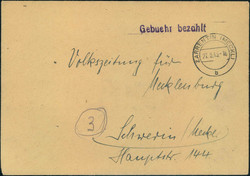 Gebuehr bezahlt
ZARRENTIN (MECKL)
b
Volkszeitung für
Mecklenburg
3
Schwerin/Meckl
Hauptstr. 144